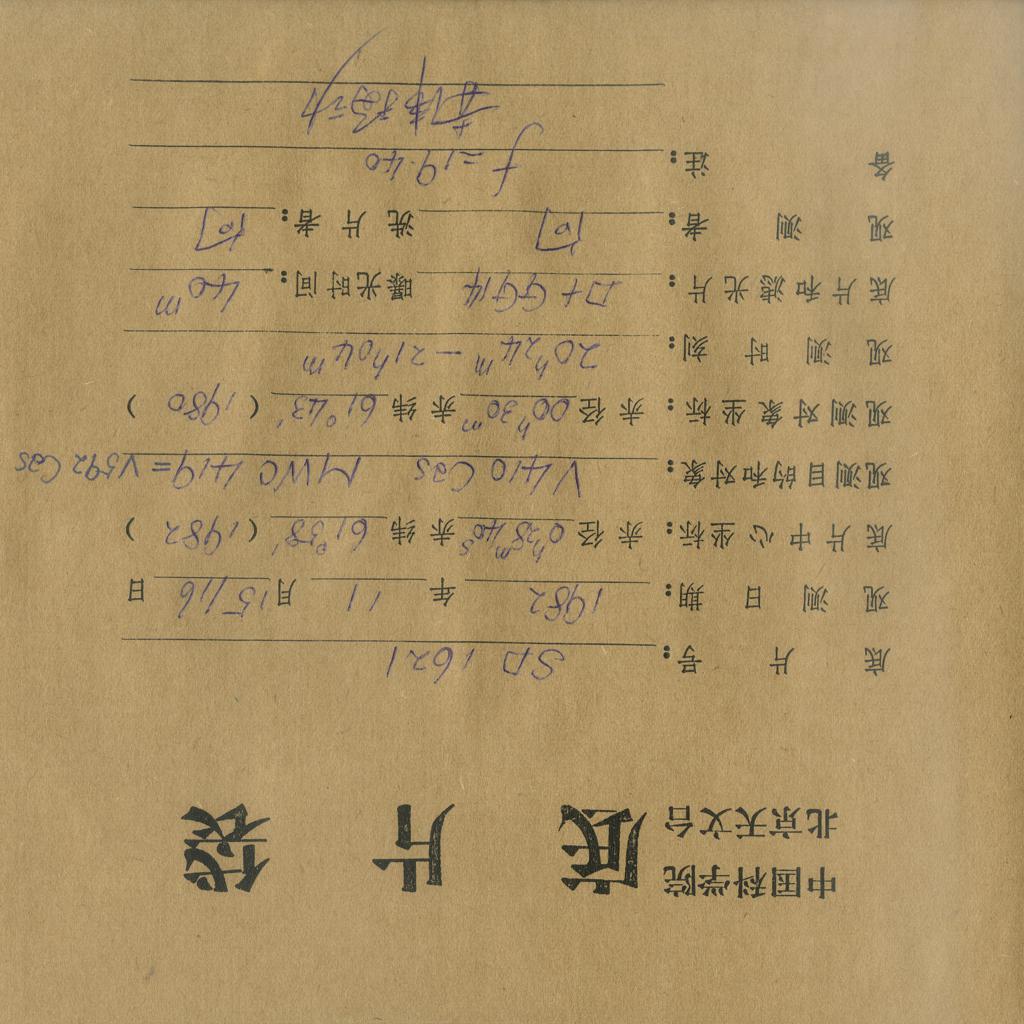 中国科学院
北京天文台
底片袋
底片号: SP 1621
观测日期: 1982 年 11 月 15/16 日
底片中心坐标: 赤径 0ʰ28ᵐ40ˢ 赤纬 61°38′ (1982)
观测目的和对象: V410 Cas MWC 419 = V592 Cas
观测对象坐标: 赤径 00ʰ30ᵐ 赤纬 61°43′ (1980)
观测时刻: 20ʰ24ᵐ — 21ʰ04ᵐ
底片和滤光片: D+GG14 曝光时间: 40ᵐ
观测者: 洗片者:
备注: f=19.40